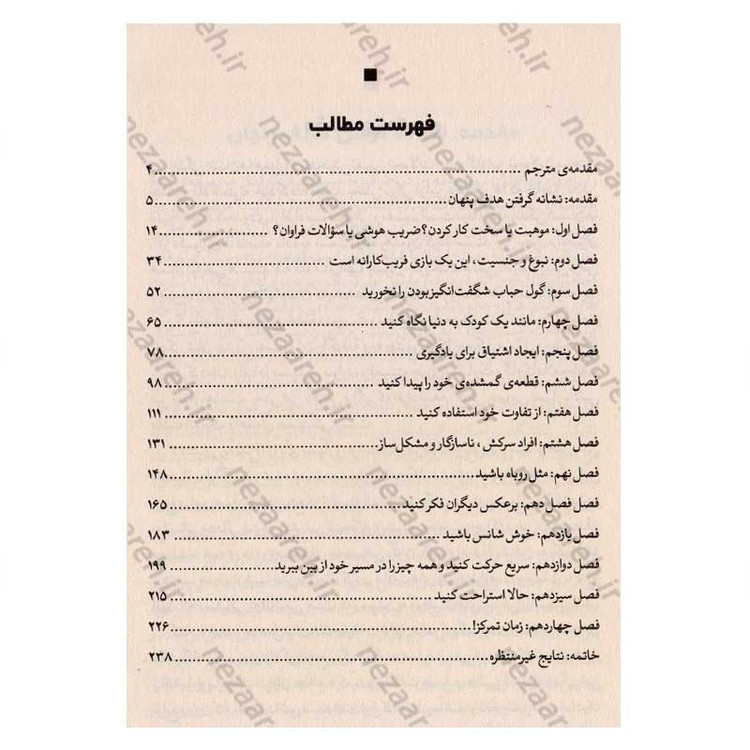 فهرست مطالب
مقدمه‌ی مترجم ........ ۴
مقدمه: نشانه گرفتن هدف پنهان ........ ۵
فصل اول: موهبت یا سخت کار کردن؟ ضریب هوشی یا سؤالات فراوان؟ ........ ۱۴
فصل دوم: نبوغ و جنسیت، این یک بازی فریب‌کارانه است ........ ۳۴
فصل سوم: گول حباب شگفت‌انگیز بودن را نخورید ........ ۵۲
فصل چهارم: مانند یک کودک به دنیا نگاه کنید ........ ۶۵
فصل پنجم: ایجاد اشتیاق برای یادگیری ........ ۷۸
فصل ششم: قطعه‌ی گمشده‌ی خود را پیدا کنید ........ ۹۸
فصل هفتم: از تفاوت خود استفاده کنید ........ ۱۱۱
فصل هشتم: افراد سرکش، ناسازگار و مشکل‌ساز ........ ۱۳۱
فصل نهم: مثل روباه باشید ........ ۱۴۸
فصل فصل دهم: برعکس دیگران فکر کنید ........ ۱۶۵
فصل یازدهم: خوش شانس باشید ........ ۱۸۳
فصل دوازدهم: سریع حرکت کنید و همه چیز را در مسیر خود از بین ببرید ........ ۱۹۹
فصل سیزدهم: حالا استراحت کنید ........ ۲۱۵
فصل چهاردهم: زمان تمرکز! ........ ۲۲۶
خاتمه: نتایج غیرمنتظره ........ ۲۳۸
nezaareh.ir